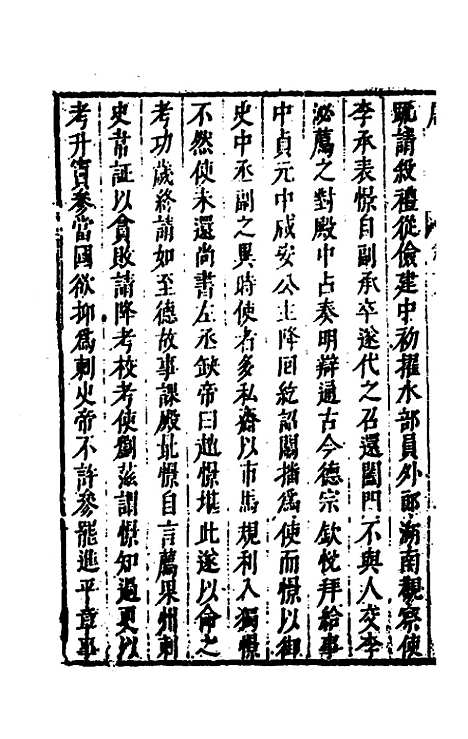 甄請殺禮從儉建中初擢水部員外郎湖南觀察使
李承表憬自副承卒遂代之召還闔門不與人交李
泌薦之對殿中占奏明辯通古今德宗欽悅拜給事
中貞元中咸安公主降回紇詔關播爲使而憬以御
史中丞副之異時使者多私齎以市馬規利入獨憬
不然使未還尚書左丞缺帝曰趙憬堪此遂以命之
考功歲終請如至德故事課殿最憬自言薦果州刺
史韋証以貪敗請降考校考使劉滋謂憬知過更以
考升竇參當國欲抑爲刺史帝不許參罷進平章事